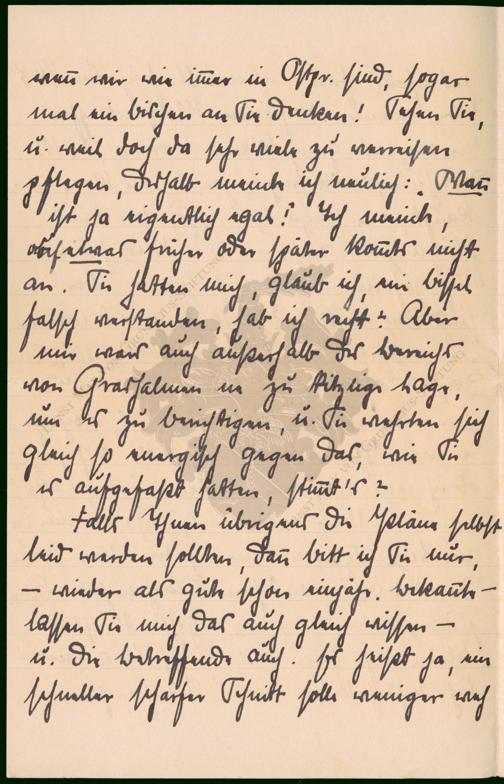 wenn wir wie immer in Ostpr. sind, sogar
mal ein bischen an Sie denken! Sehen Sie,
u. weil doch da sehr viele zu verreisen
pflegen, deshalb meinte ich neulich: „Wann
ist ja eigentlich egal! Ich meinte,
ob's etwas früher oder später kommts nicht
an. Sie hatten mich, glaub ich, ein bissel
falsch verstanden, hab ich recht? Aber
mir wars auch außerhalb des Bereichs
von Grashalmen ne zu kitzlige Lage,
um es zu berichtigen, u. Sie wehrten sich
gleich so energisch gegen das, wie Sie
es aufgefaßt hatten, stimmt's?
Falls Ihnen übrigens die Pläne selbst
leid werden sollten, dann bitt ich Sie nur,
– wieder als gute schon einjähr. Bekannte –
lassen Sie mich das auch gleich wissen –
u. die Betreffende auch. Es heißt ja, ein
schneller scharfer Schnitt solle weniger weh